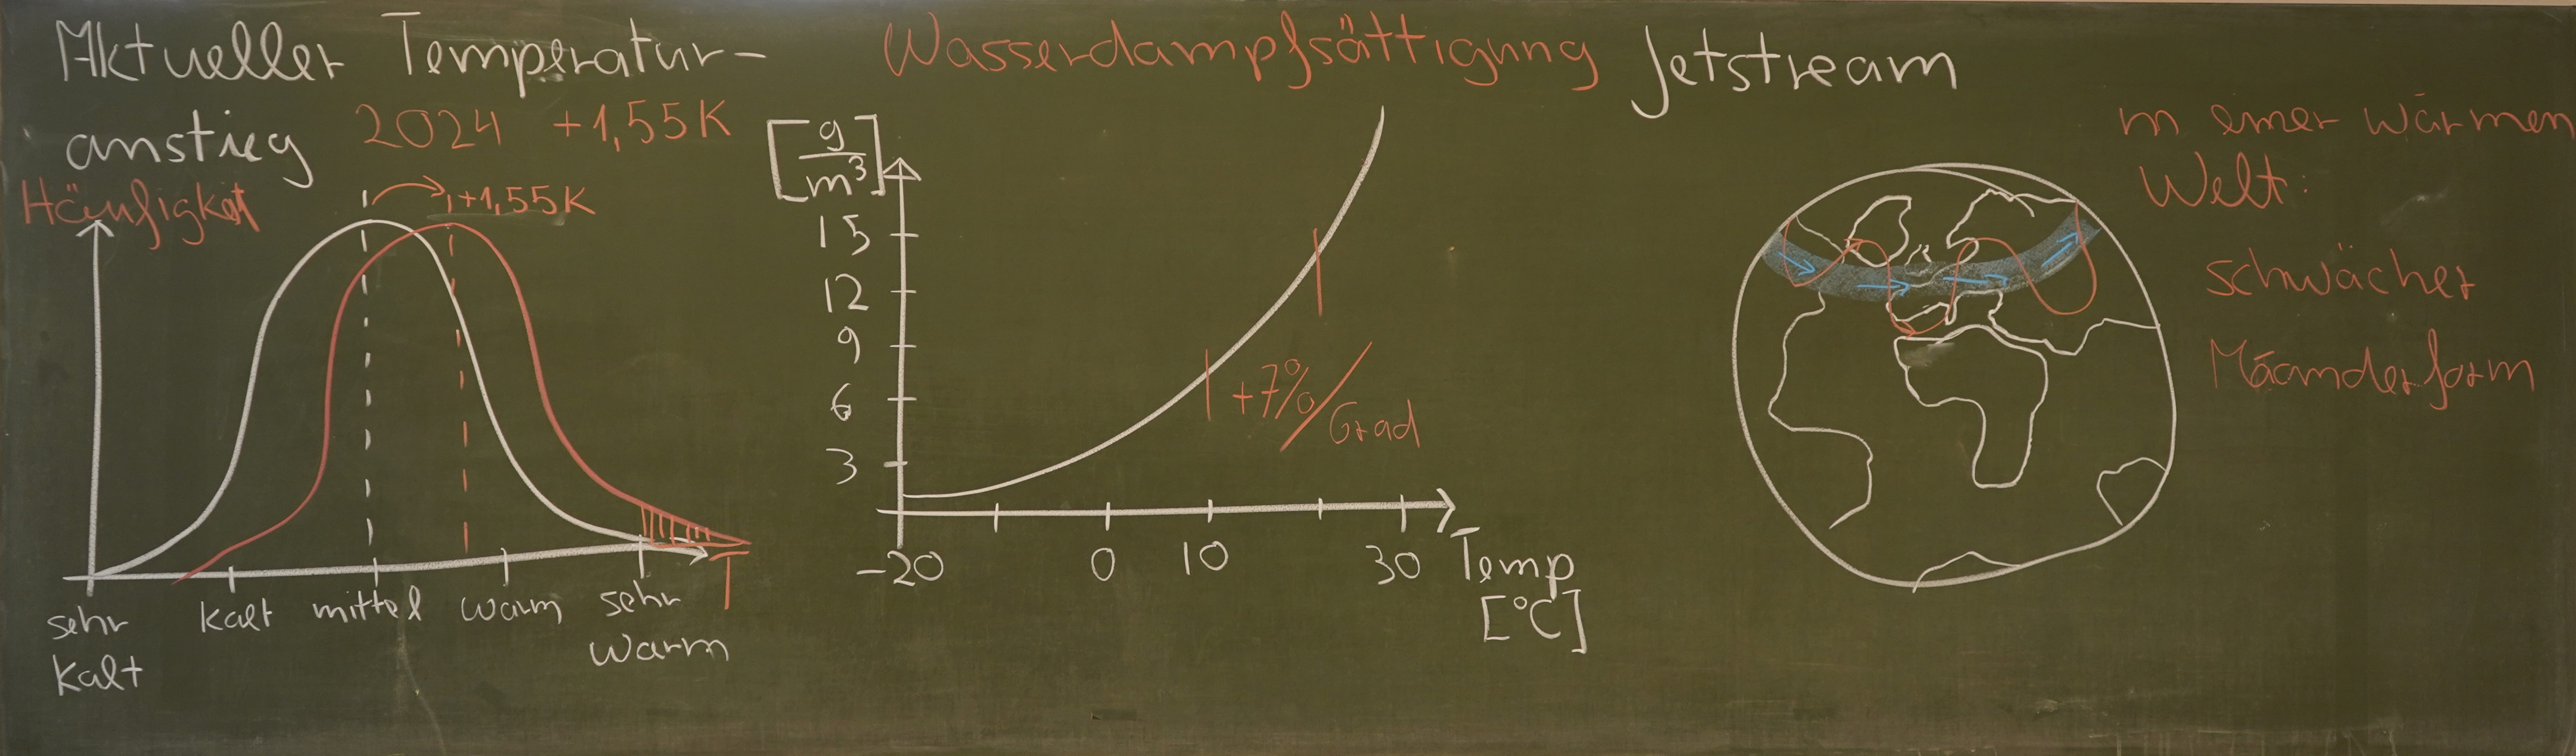 Aktueller Temperatur-
anstieg 2024 +1,55K
Häufigkeit
+1,55K
sehr
kalt
kalt
mittel
warm
sehr
warm
T
Wasserdampfsättigung
[g/m³]
15
12
9
6
3
+7%/Grad
-20
0
10
30
Temp
[°C]
Jetstream
in einer wärmen
Welt:
schwächer
Mäanderform